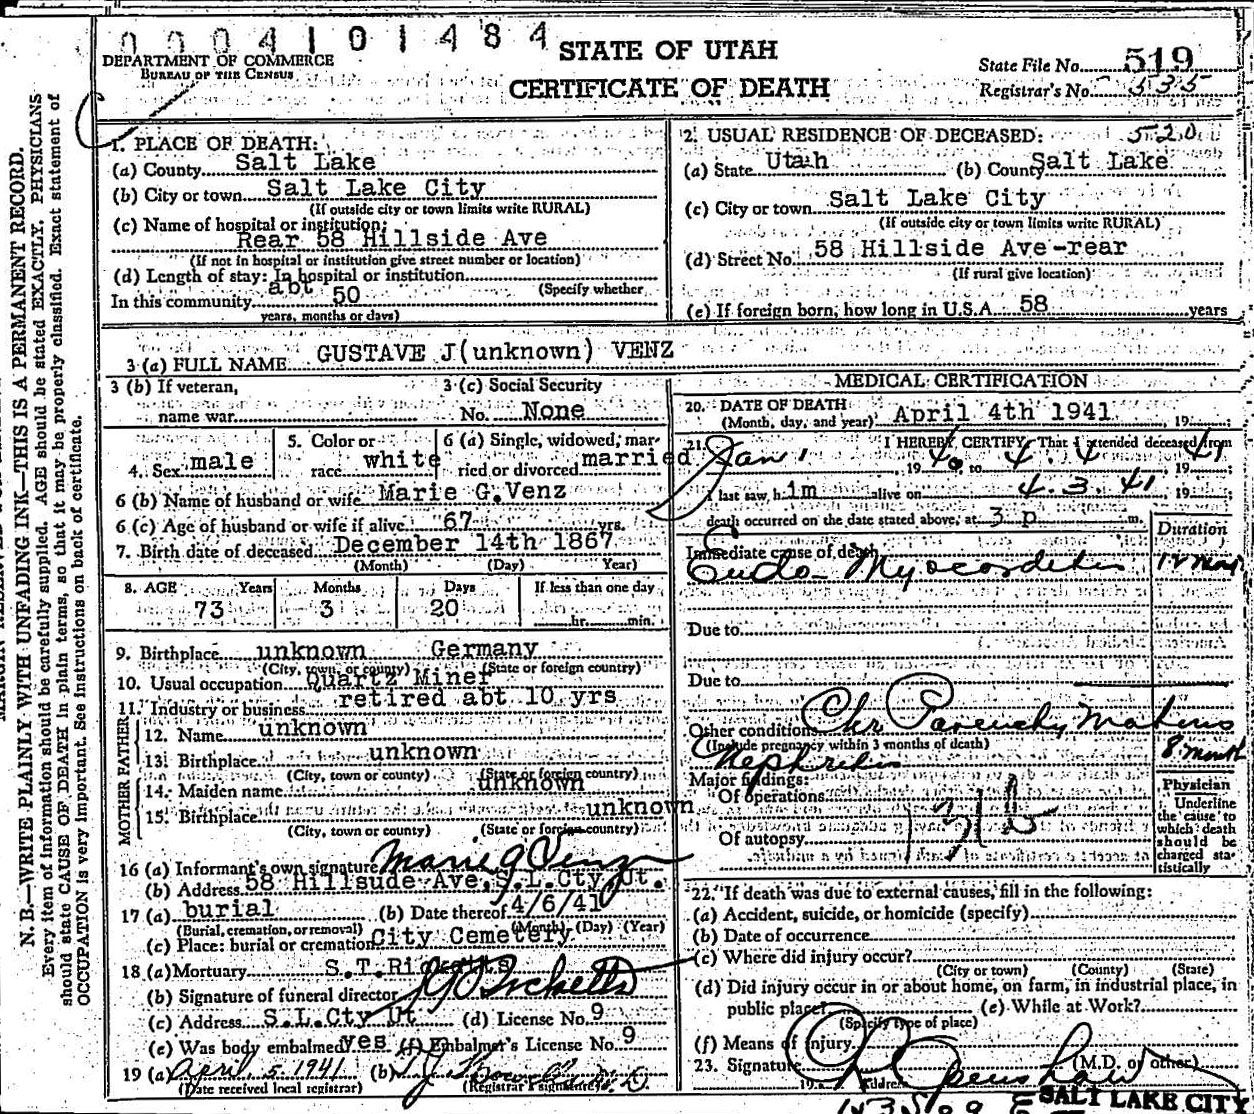 0004101484
DEPARTMENT OF COMMERCE
BUREAU OF THE CENSUS
STATE OF UTAH
CERTIFICATE OF DEATH
State File No. 519
Registrar's No. 535
1. PLACE OF DEATH:
(a) County Salt Lake
(b) City or town Salt Lake City
(If outside city or town limits write RURAL)
(c) Name of hospital or institution:
Rear 58 Hillside Ave
(If not in hospital or institution give street number or location)
(d) Length of stay: In hospital or institution
(Specify whether
In this community abt 50
years, months or days)
2. USUAL RESIDENCE OF DECEASED: 520
(a) State Utah (b) County Salt Lake
(c) City or town Salt Lake City
(If outside city or town limits write RURAL)
(d) Street No. 58 Hillside Ave-rear
(If rural give location)
(e) If foreign born, how long in U.S.A. 58 years
3 (a) FULL NAME GUSTAVE J(unknown) VENZ
3 (b) If veteran,
name war
3 (c) Social Security
No. None
4. Sex male
5. Color or
race white
6 (a) Single, widowed, mar-
ried or divorced married
6 (b) Name of husband or wife Marie G.Venz
6 (c) Age of husband or wife if alive 67 yrs.
7. Birth date of deceased December 14th 1867
(Month) (Day) Year)
8. AGE Years Months Days If less than one day
73 3 20 hr. min.
9. Birthplace unknown Germany
(City, town or county) (State or foreign country)
10. Usual occupation Quartz Miner
11. Industry or business retired abt 10 yrs
FATHER
12. Name unknown
13. Birthplace unknown
(City, town or county) (State or foreign country)
MOTHER
14. Maiden name unknown
15. Birthplace unknown
(City, town or county) (State or foreign country)
16 (a) Informant's own signature Marie G Venz
(b) Address 58 Hillsude Ave, S.L.Cty Ut.
17 (a) burial (b) Date thereof 4/6/41
(Burial, cremation, or removal) (Month) (Day) (Year)
(c) Place: burial or cremation City Cemetery
18 (a) Mortuary S.T.Ricketts
(b) Signature of funeral director Ricketts
(c) Address S.L.Cty Ut (d) License No. 9
(e) Was body embalmed yes (f) Embalmer's License No. 9
19 (a) April 5 1941 (b)
(Date received local registrar) (Registrar's signature)
MEDICAL CERTIFICATION
20. DATE OF DEATH
(Month, day, and year) April 4th 1941, 19
21. I HEREBY CERTIFY, That I attended deceased from
Jan 1, 1940, to 4.4, 1941
I last saw him alive on 4.3.41, 19
death occurred on the date stated above, at 3 p m.
Duration
Immediate cause of death
Endo-Myocarditis 12 mon
Due to
Due to
Other conditions Chr Parenchymatous
(Include pregnancy within 3 months of death)
Nephritis 8 month
Major findings:
Of operations
131b
Of autopsy
Physician
Underline
the cause to
which death
should be
charged sta-
tistically
22. If death was due to external causes, fill in the following:
(a) Accident, suicide, or homicide (specify)
(b) Date of occurrence
(c) Where did injury occur?
(City or town) (County) (State)
(d) Did injury occur in or about home, on farm, in industrial place, in
public place? (e) While at Work?
(Specify type of place)
(f) Means of injury
23. Signature Openshaw (M.D. or other)
19 Address
SALT LAKE CITY
N. B.—WRITE PLAINLY WITH UNFADING INK—THIS IS A PERMANENT RECORD.
Every item of information should be carefully supplied. AGE should be stated EXACTLY. PHYSICIANS
should state CAUSE OF DEATH in plain terms, so that it may be properly classified. Exact statement of
OCCUPATION is very important. See instructions on back of certificate.